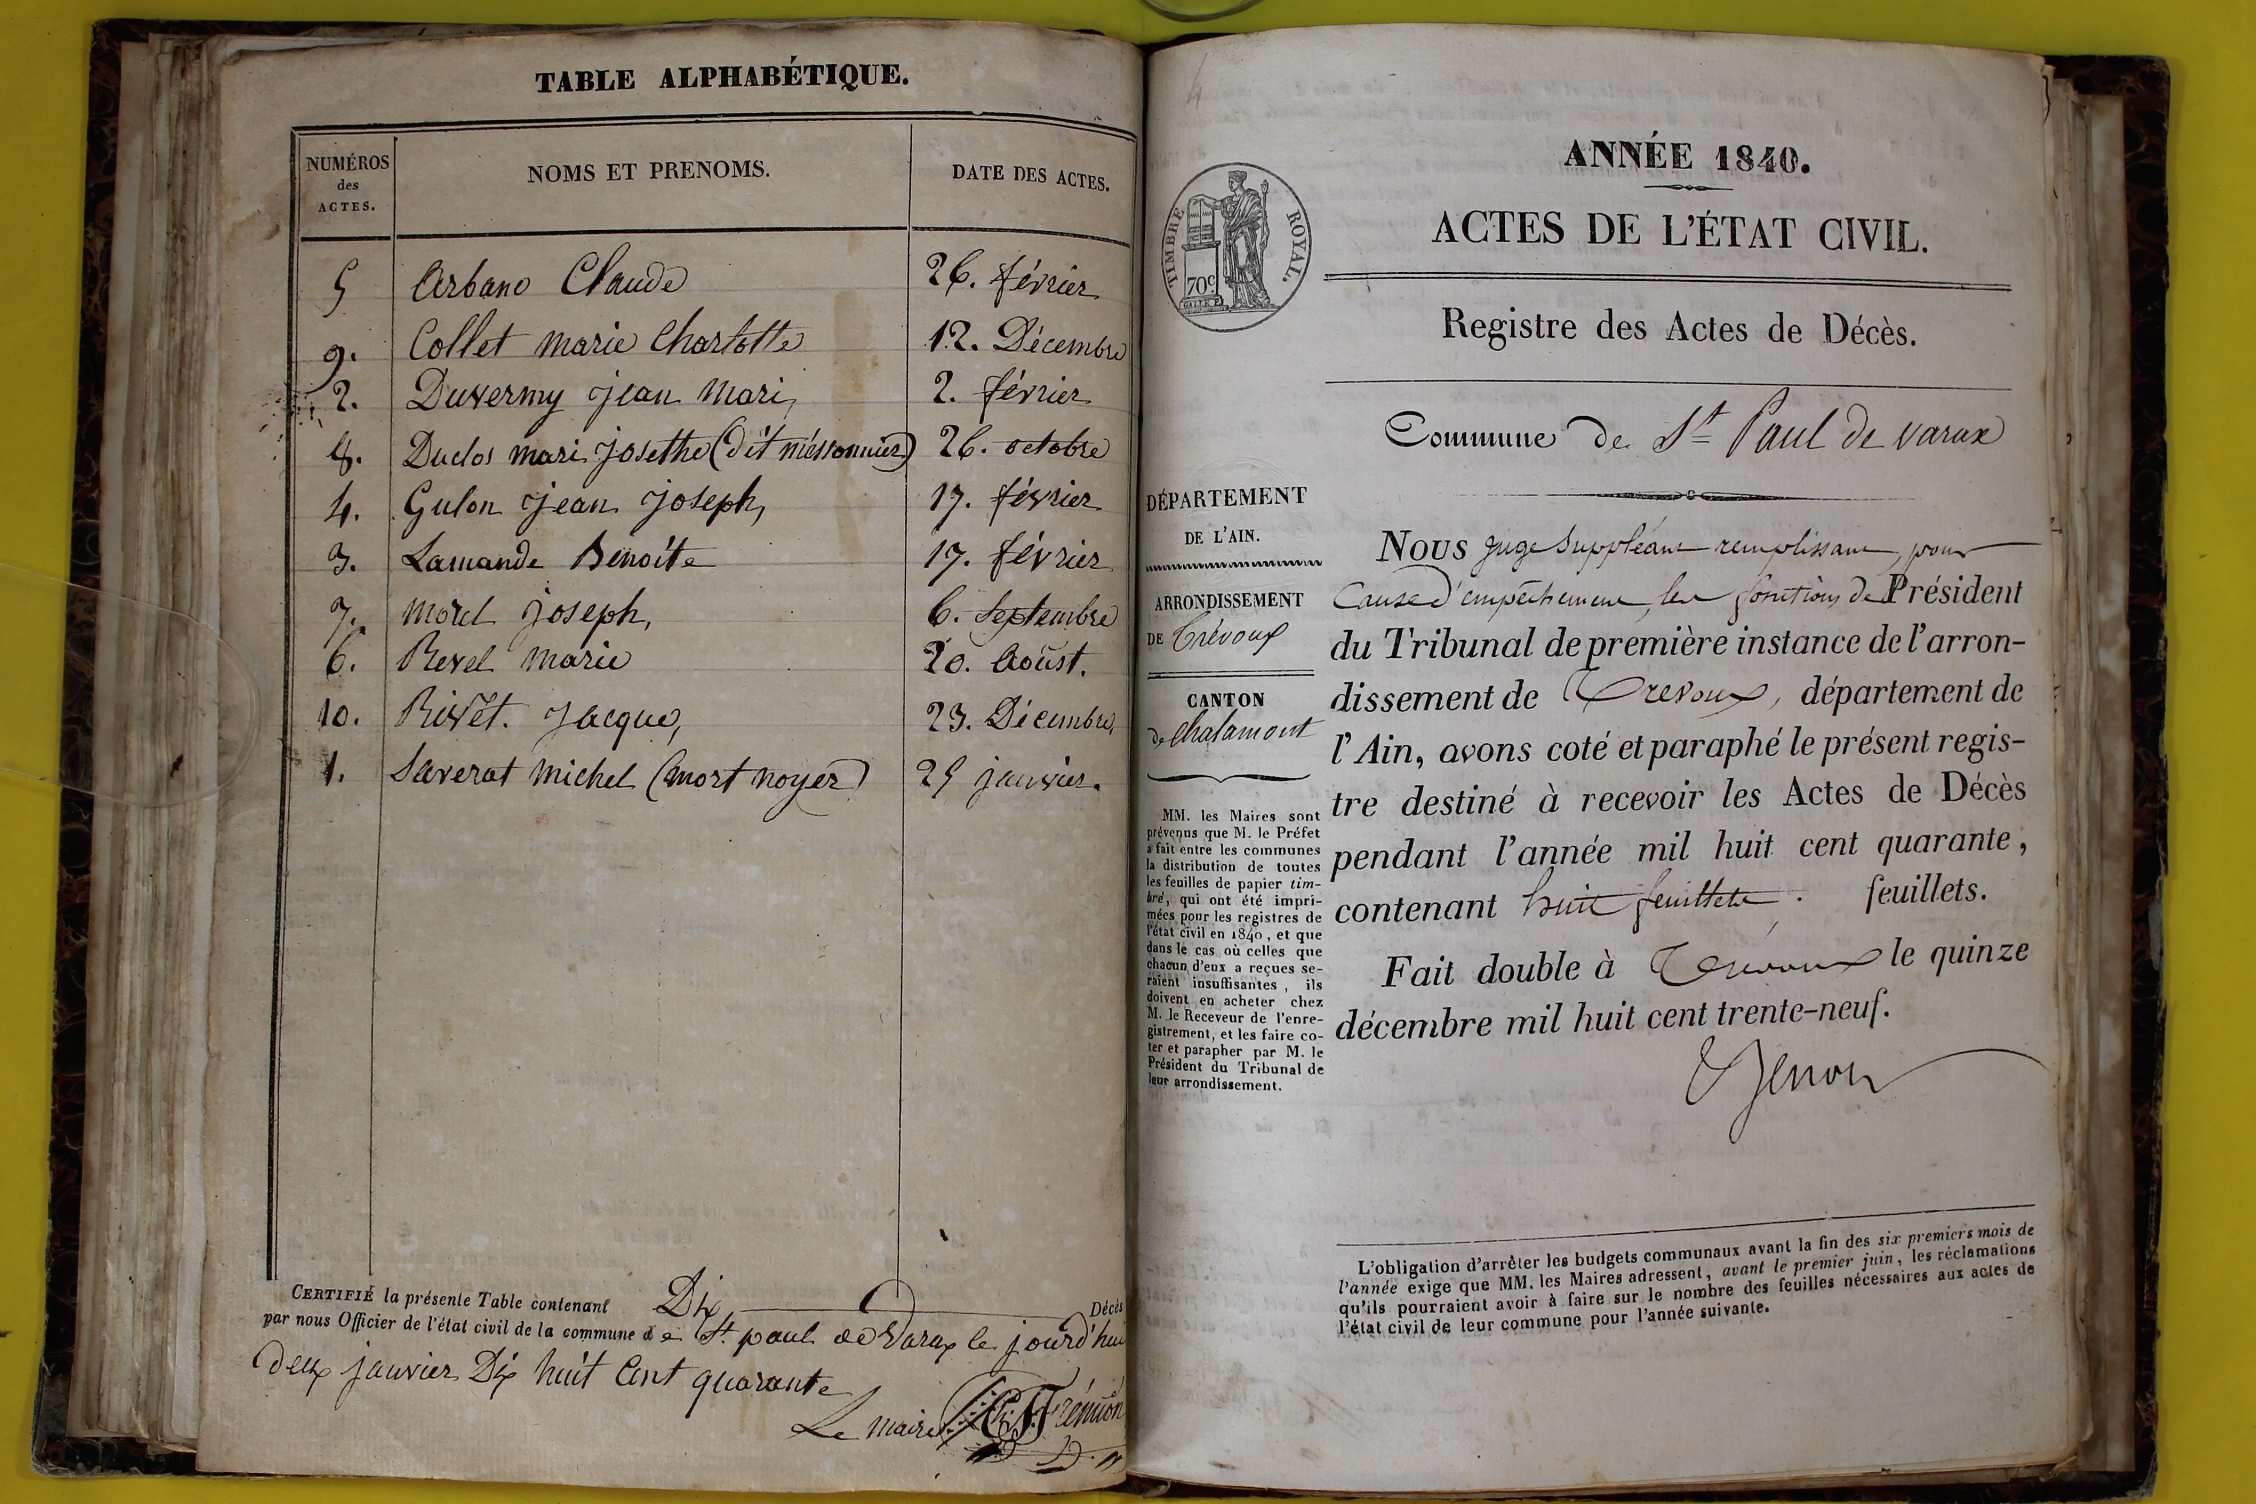 TABLE ALPHABÉTIQUE.
NUMÉROS
des
ACTES.
NOMS ET PRENOMS.
DATE DES ACTES.
5 Arbano Claude 26. février
9. Collet marie Charlotte 12. Décembre
2. Duvermy jean mari, 2. février
8. Duclos mari josethe (dit méssonnier) 26. octobre
4. Gulon jean joseph, 17. février
3. Lamande Benoîte 17. février
7. morel joseph, 6. Septembre
6. Revel marie 20. Aoust.
10. Rivet. Jacque, 23. Décembre,
1. Saverat michel (mort noyer) 25 janvier.
CERTIFIÉ la présente Table contenant Dix Décès
par nous Officier de l'état civil de la commune de St. paul de Varax le jourd'hui
deux janvier Dix huit Cent quarante
Le maire
ANNÉE 1840.
ACTES DE L'ÉTAT CIVIL.
TIMBRE ROYAL.
70c
Registre des Actes de Décès.
Commune de St Paul de varax
DÉPARTEMENT
DE L'AIN.
ARRONDISSEMENT
DE Trévoux
CANTON
de Chalamont
MM. les Maires sont
prévenus que M. le Préfet
a fait entre les communes
la distribution de toutes
les feuilles de papier tim-
bré, qui ont été impri-
mées pour les registres de
l'état civil en 1840, et que
dans le cas où celles que
chacun d'eux a reçues se-
raient insuffisantes, ils
doivent en acheter chez
M. le Receveur de l'enre-
gistrement, et les faire co-
ter et parapher par M. le
Président du Tribunal de
leur arrondissement.
Nous juge Suppléant remplissant, pour
Cause d'empêchement, les fonctions de Président
du Tribunal de première instance de l'arron-
dissement de Trevoux, département de
l'Ain, avons coté et paraphé le présent regis-
tre destiné à recevoir les Actes de Décès
pendant l'année mil huit cent quarante,
contenant huit feuillets. feuillets.
Fait double à Trévoux le quinze
décembre mil huit cent trente-neuf.
L'obligation d'arrêter les budgets communaux avant la fin des six premiers mois de
l'année exige que MM. les Maires adressent, avant le premier juin, les réclamations
qu'ils pourraient avoir à faire sur le nombre des feuilles nécessaires aux actes de
l'état civil de leur commune pour l'année suivante.